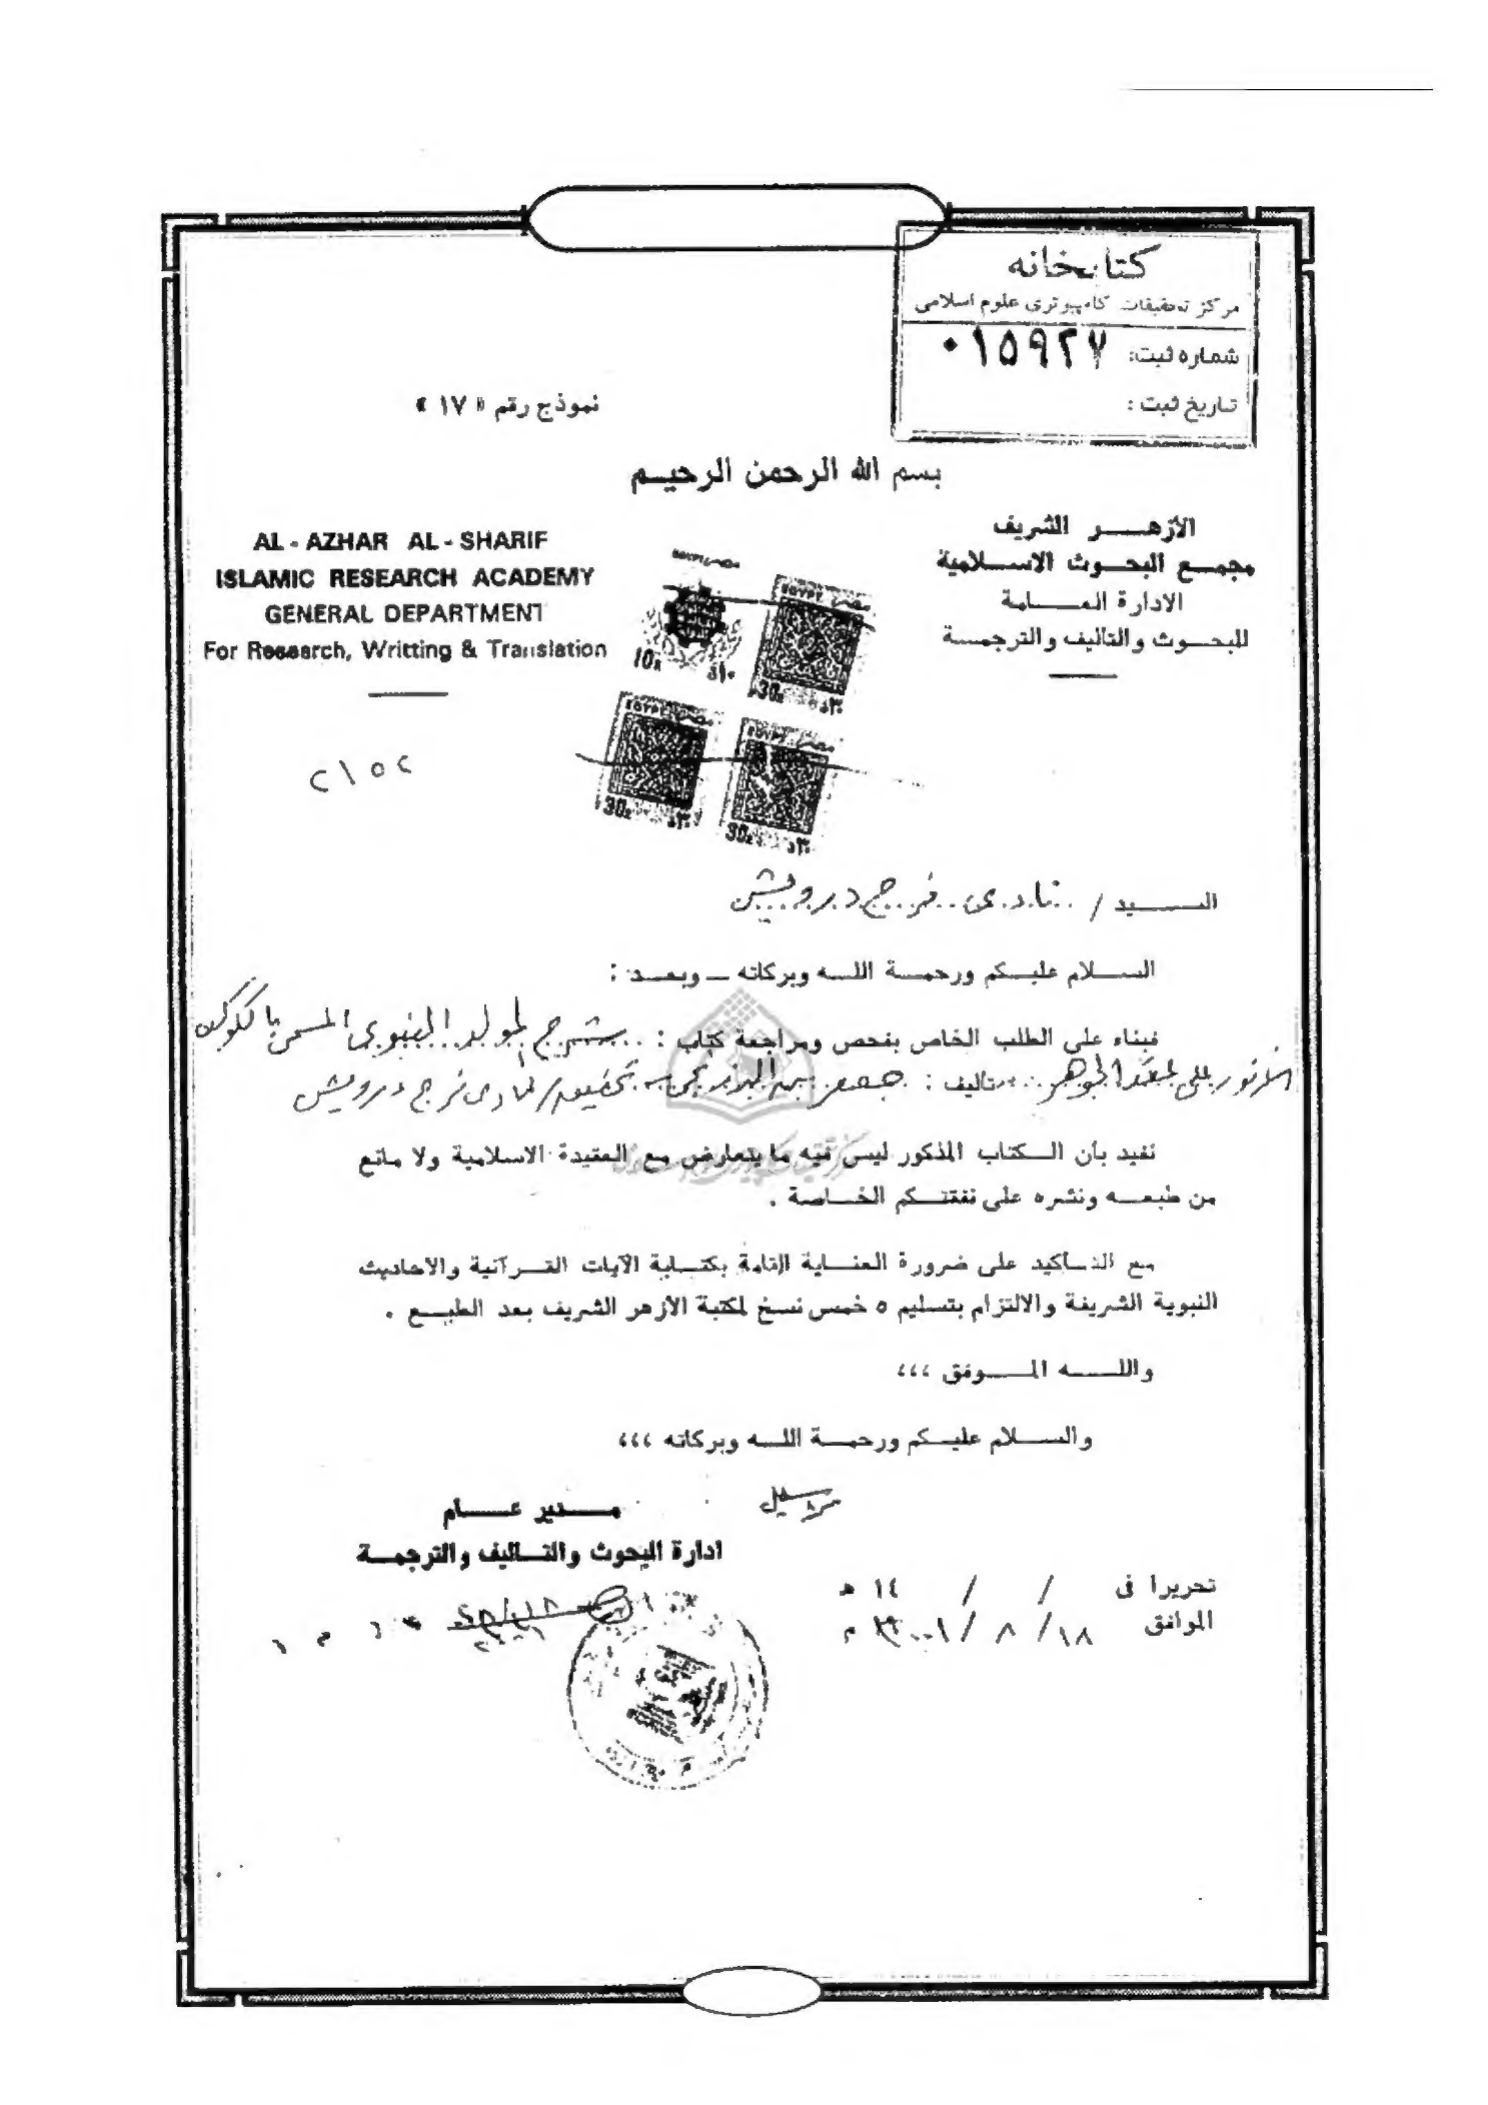 كتابخانه
مركز تحقيقات كامپيوترى علوم اسلامى
شماره ثبت: ٠١٥٩٢٧
تاريخ ثبت :
نموذج رقم « ١٧ »
بسم الله الرحمن الرحيم
الأزهر الشريف
مجمع البحوث الاسلامية
الادارة العامة
للبحوث والتأليف والترجمة
AL - AZHAR AL - SHARIF
ISLAMIC RESEARCH ACADEMY
GENERAL DEPARTMENT
For Research, Writting & Translation
EGYPT مصر
10
EGYPT مصر
30
EGYPT مصر
30
EGYPT مصر
30
٢١٥٢
السيد / نادى فرج درويش
السلام عليكم ورحمة الله وبركاته - وبعد :
فبناء على الطلب الخاص بفحص ومراجعة كتاب : شرح المولد النبوى المسمى بالكوكب
الأنور على عقد الجوهر تأليف : جعفر البرزنجى تحقيق / نادى فرج درويش
نفيد بأن الكتاب المذكور ليس فيه ما يتعارض مع العقيدة الاسلامية ولا مانع
من طبعه ونشره على نفقتكم الخاصة .
مع التأكيد على ضرورة العناية التامة بكتابة الآيات القرآنية والأحاديث
النبوية الشريفة والالتزام بتسليم ٥ خمس نسخ لمكتبة الأزهر الشريف بعد الطبع .
والله الموفق ،،،
والسلام عليكم ورحمة الله وبركاته ،،،
مدير عام
ادارة البحوث والتأليف والترجمة
تحريرا فى / / ١٤ هـ
الموافق ١٨ / ٨ / ٢٠٠١ م